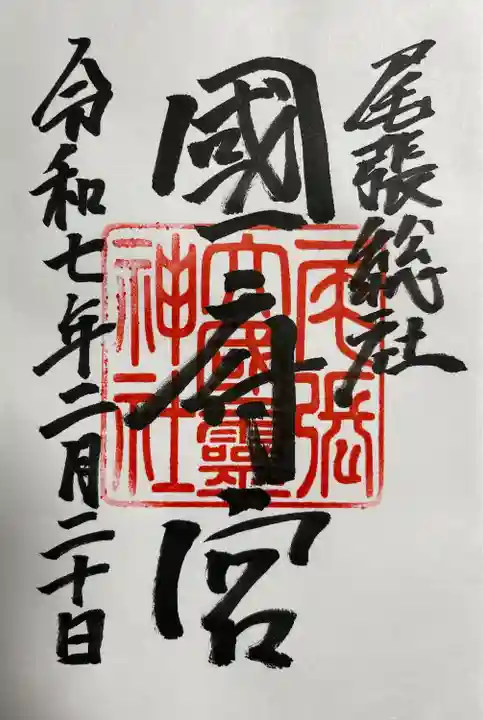 尾張総社
國府宮
令和七年二月二十日
尾張
大國靈
神社